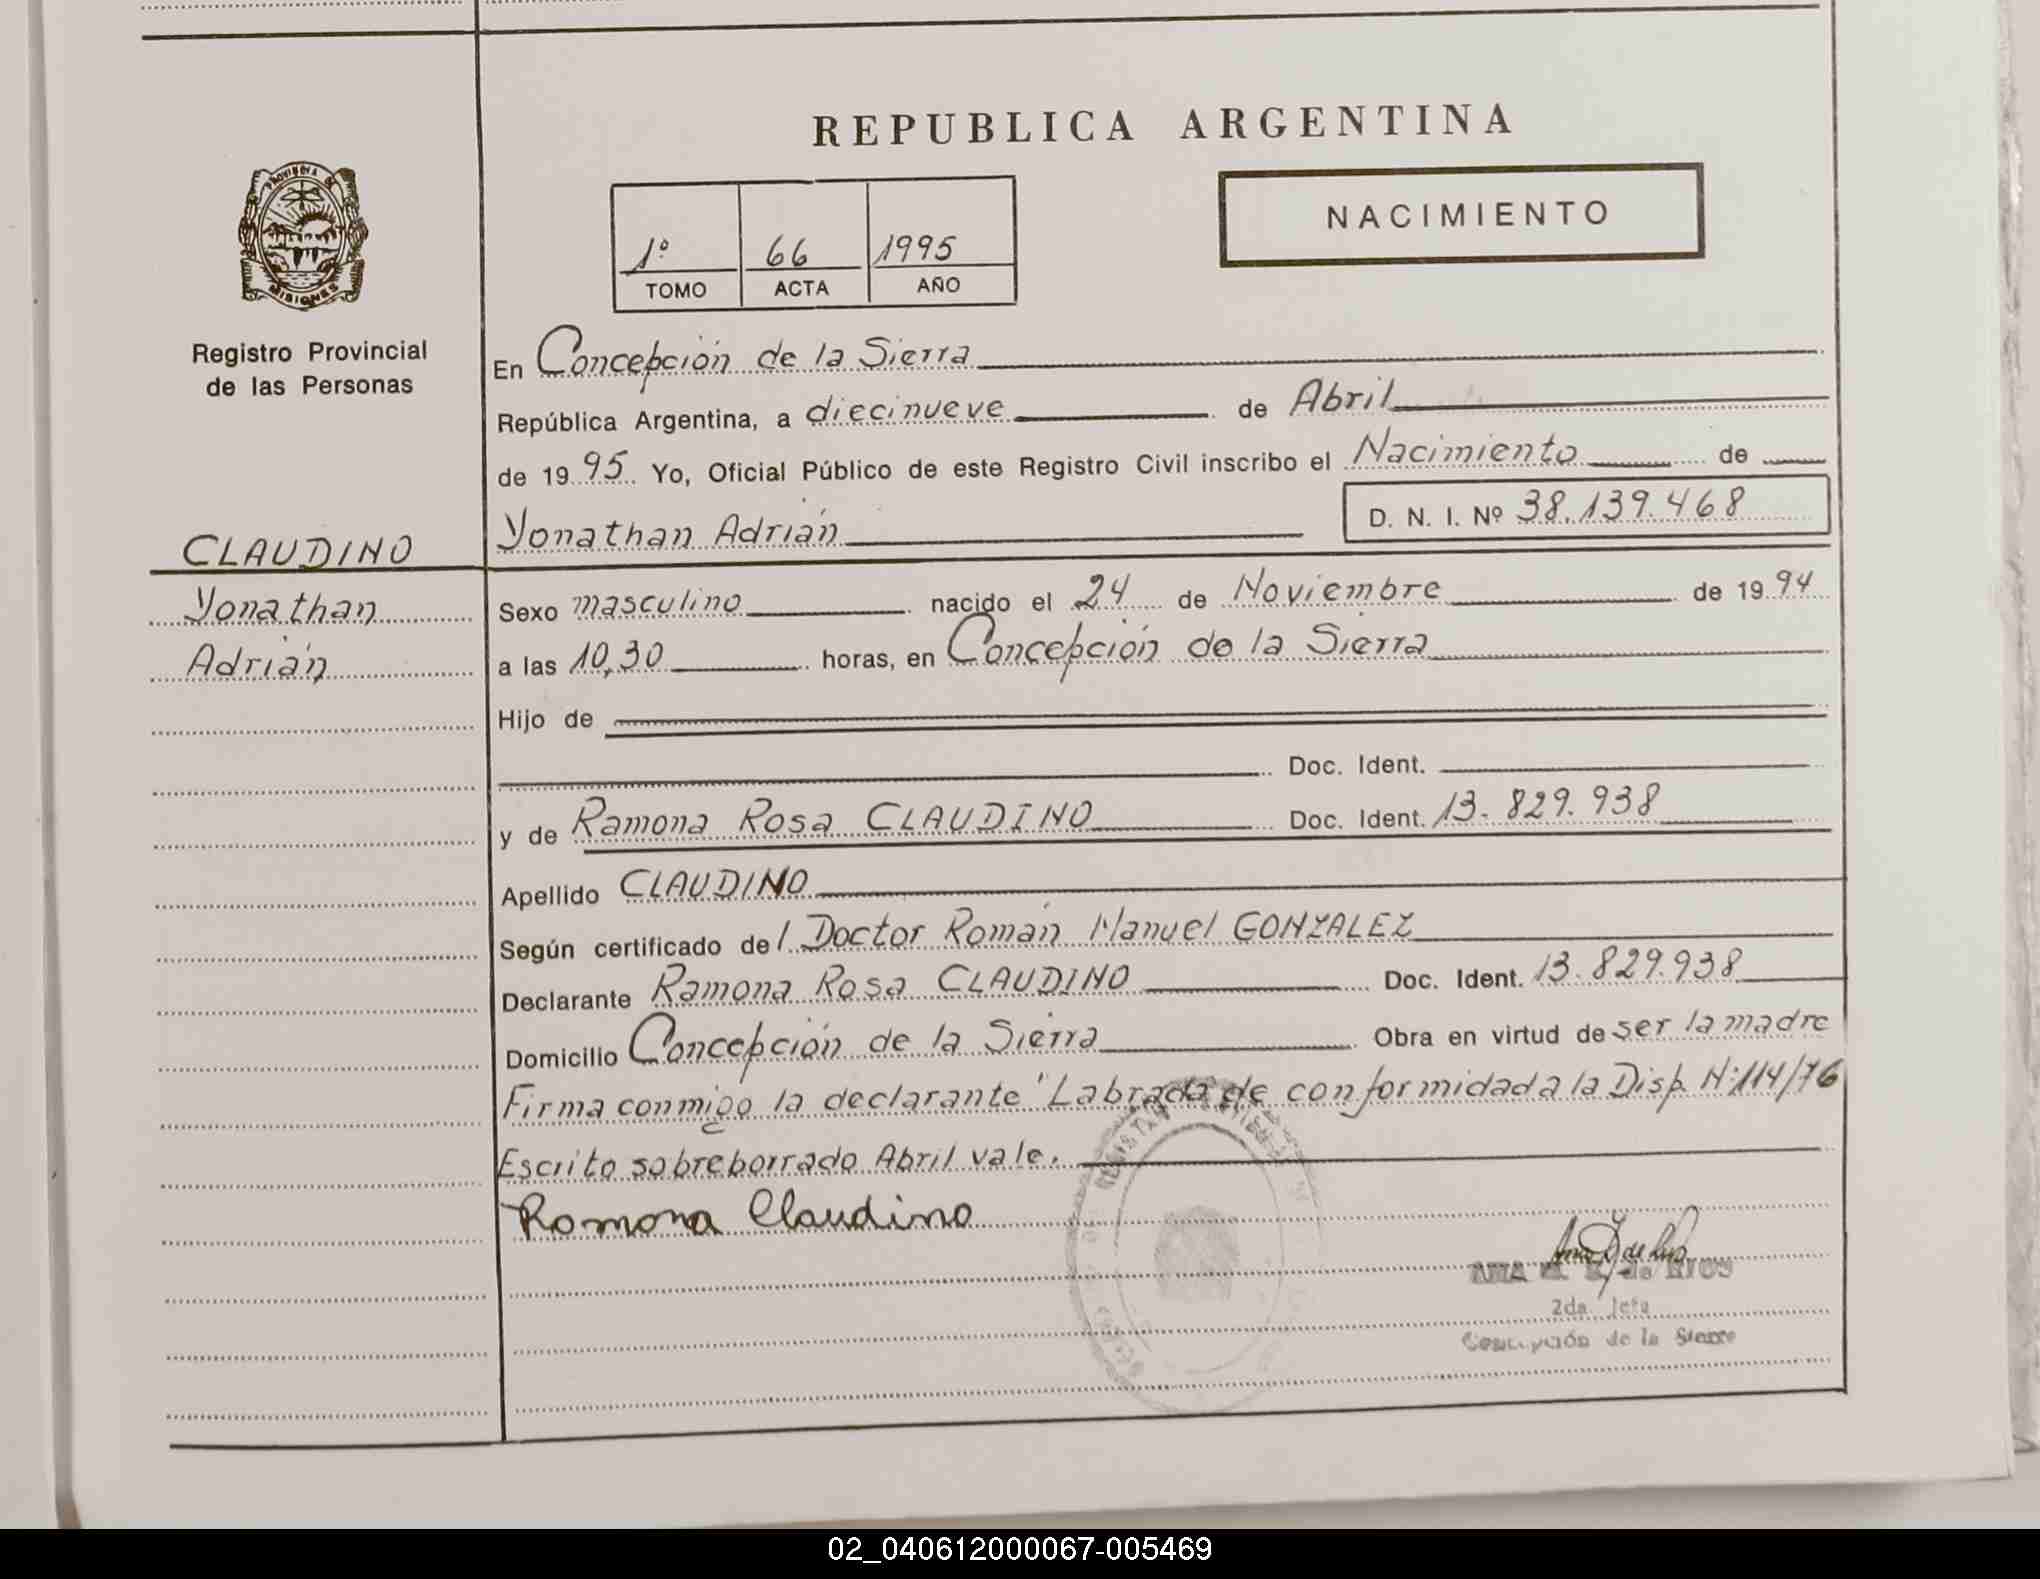 REPUBLICA ARGENTINA
PROVINCIA DE
MISIONES
Registro Provincial
de las Personas
1º 66 1995
TOMO ACTA AÑO
NACIMIENTO
En Concepción de la Sierra
República Argentina, a diecinueve de Abril
de 1995. Yo, Oficial Público de este Registro Civil inscribo el Nacimiento de
Yonathan Adrián D. N. I. Nº 38.139.468
CLAUDINO
Yonathan
Adrián
Sexo masculino nacido el 24 de Noviembre de 1994
a las 10,30 horas, en Concepción de la Sierra
Hijo de
Doc. Ident.
y de Ramona Rosa CLAUDINO Doc. Ident. 13.829.938
Apellido CLAUDINO
Según certificado del Doctor Román Manuel GONZALEZ
Declarante Ramona Rosa CLAUDINO Doc. Ident. 13.829.938
Domicilio Concepción de la Sierra Obra en virtud de ser la madre
Firma conmigo la declarante "Labrada de conformidad a la Disp. Nº 114/76
Escrito sobreborrado Abril vale.
Romona Claudino
2da. Jefa
Concepción de la Sierra
02_040612000067-005469